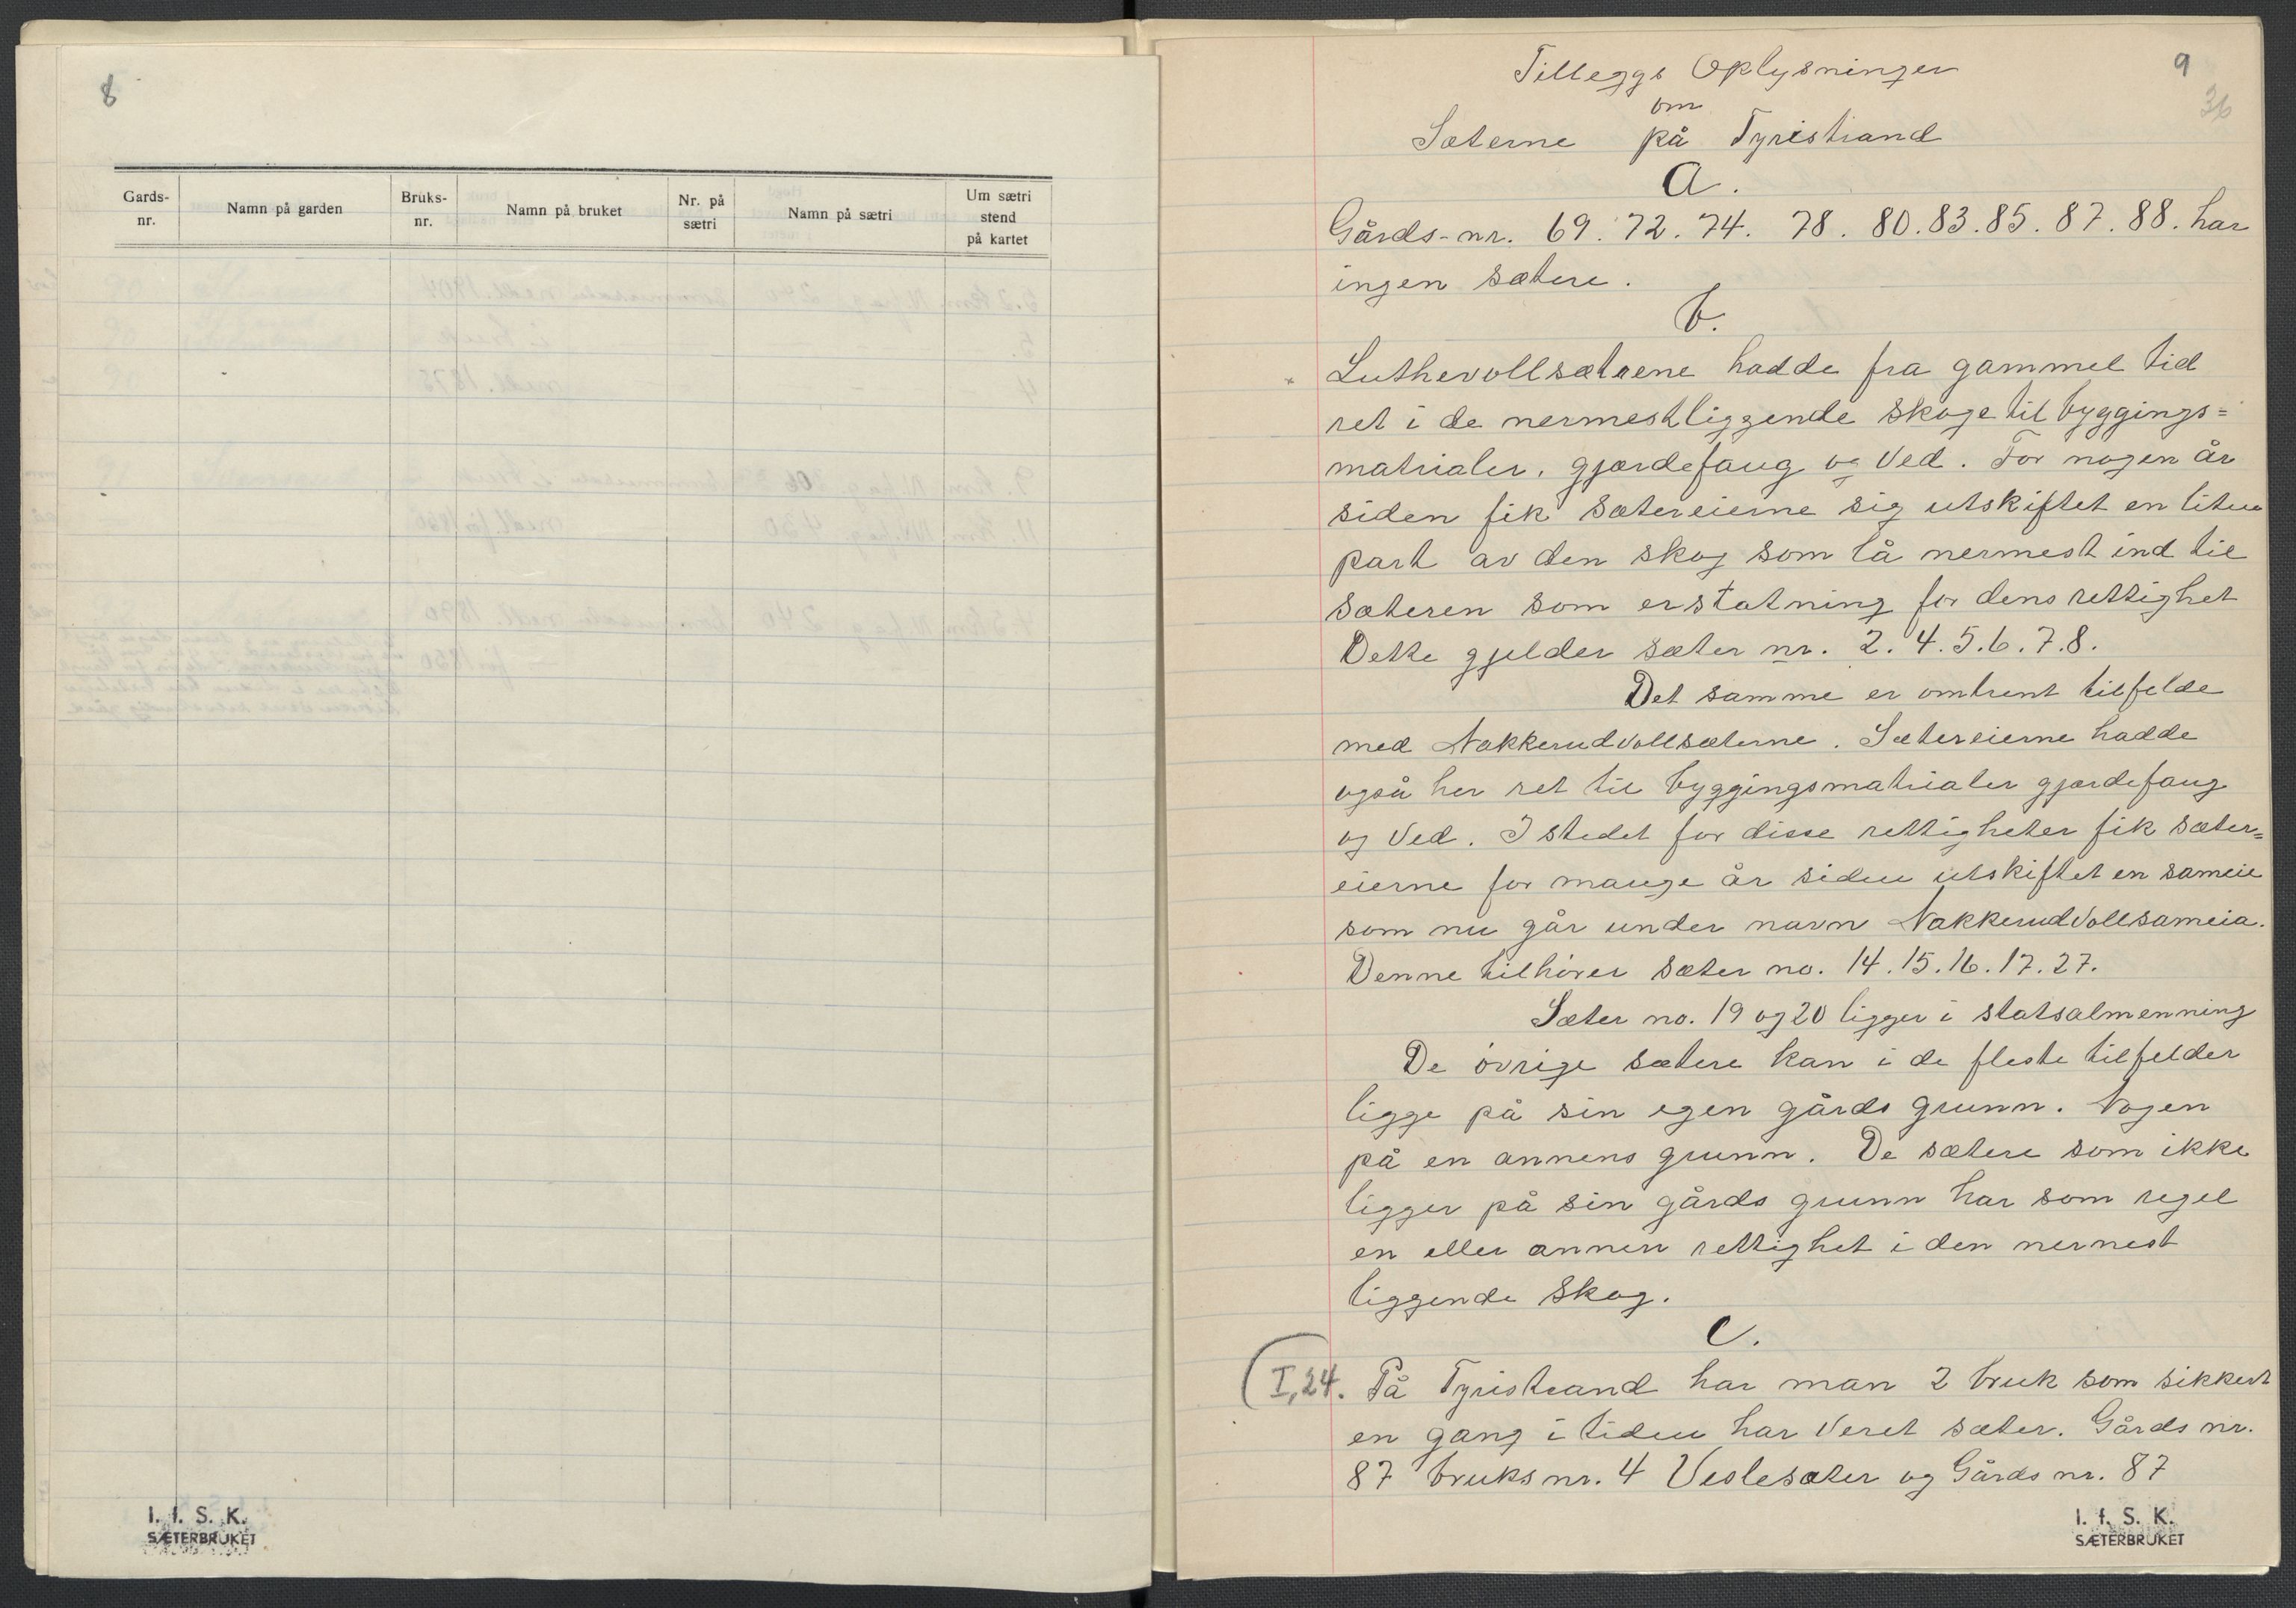 8
Gards-nr. Namn på garden Bruks-nr. Namn på bruket Nr. på sætri Namn på sætri Um sætri stend på kartet
I. f. S. K.
SÆTERBRUKET
9
36
Tilleggs Oplysninger
om
Sæterne på Tyristrand
a.
Gårds-nr. 69. 72. 74. 78. 80. 83. 85. 87. 88. har
ingen sætere.
b.
x Luthevollsætrene hadde fra gammel tid
ret i de nermestliggende skoge til byggings=
matrialer, gjærdefang og ved. For nogen år
siden fik sætereierne sig utskiftet en liten
part av den skog som lå nermest ind til
sæteren som erstatning for dens rettighet
Dette gjelder sæter nr. 2. 4. 5. 6. 7. 8.
Det samme er omtrent tilfelde
med Nakkerudvollsæterne. Sætereierne hadde
også her ret til byggingsmatrialer gjærdefang
og ved. I stedet for disse rettigheter fik sæter=
eierne for mange år siden utskiftet en sameie
som nu går under navn Nakkerudvollsameia.
Denne tilhører sæter no. 14. 15. 16. 17. 27.
Sæter no. 19 og 20 ligger i statsalmenning
De øvrige sætere kan i de fleste tilfelder
ligge på sin egen gårds grunn. Nogen
på en annens grunn. De sætere som ikke
ligger på sin gårds grunn har som regel
en eller annen rettighet i den nermest
liggende skog.
C.
(I,24. På Tyristrand har man 2 bruk som sikkert
en gang i tiden har veret sæter. Gårds nr.
87 bruks nr. 4 Veslesæter og Gårds nr. 87
I. f. S. K.
SÆTERBRUKET